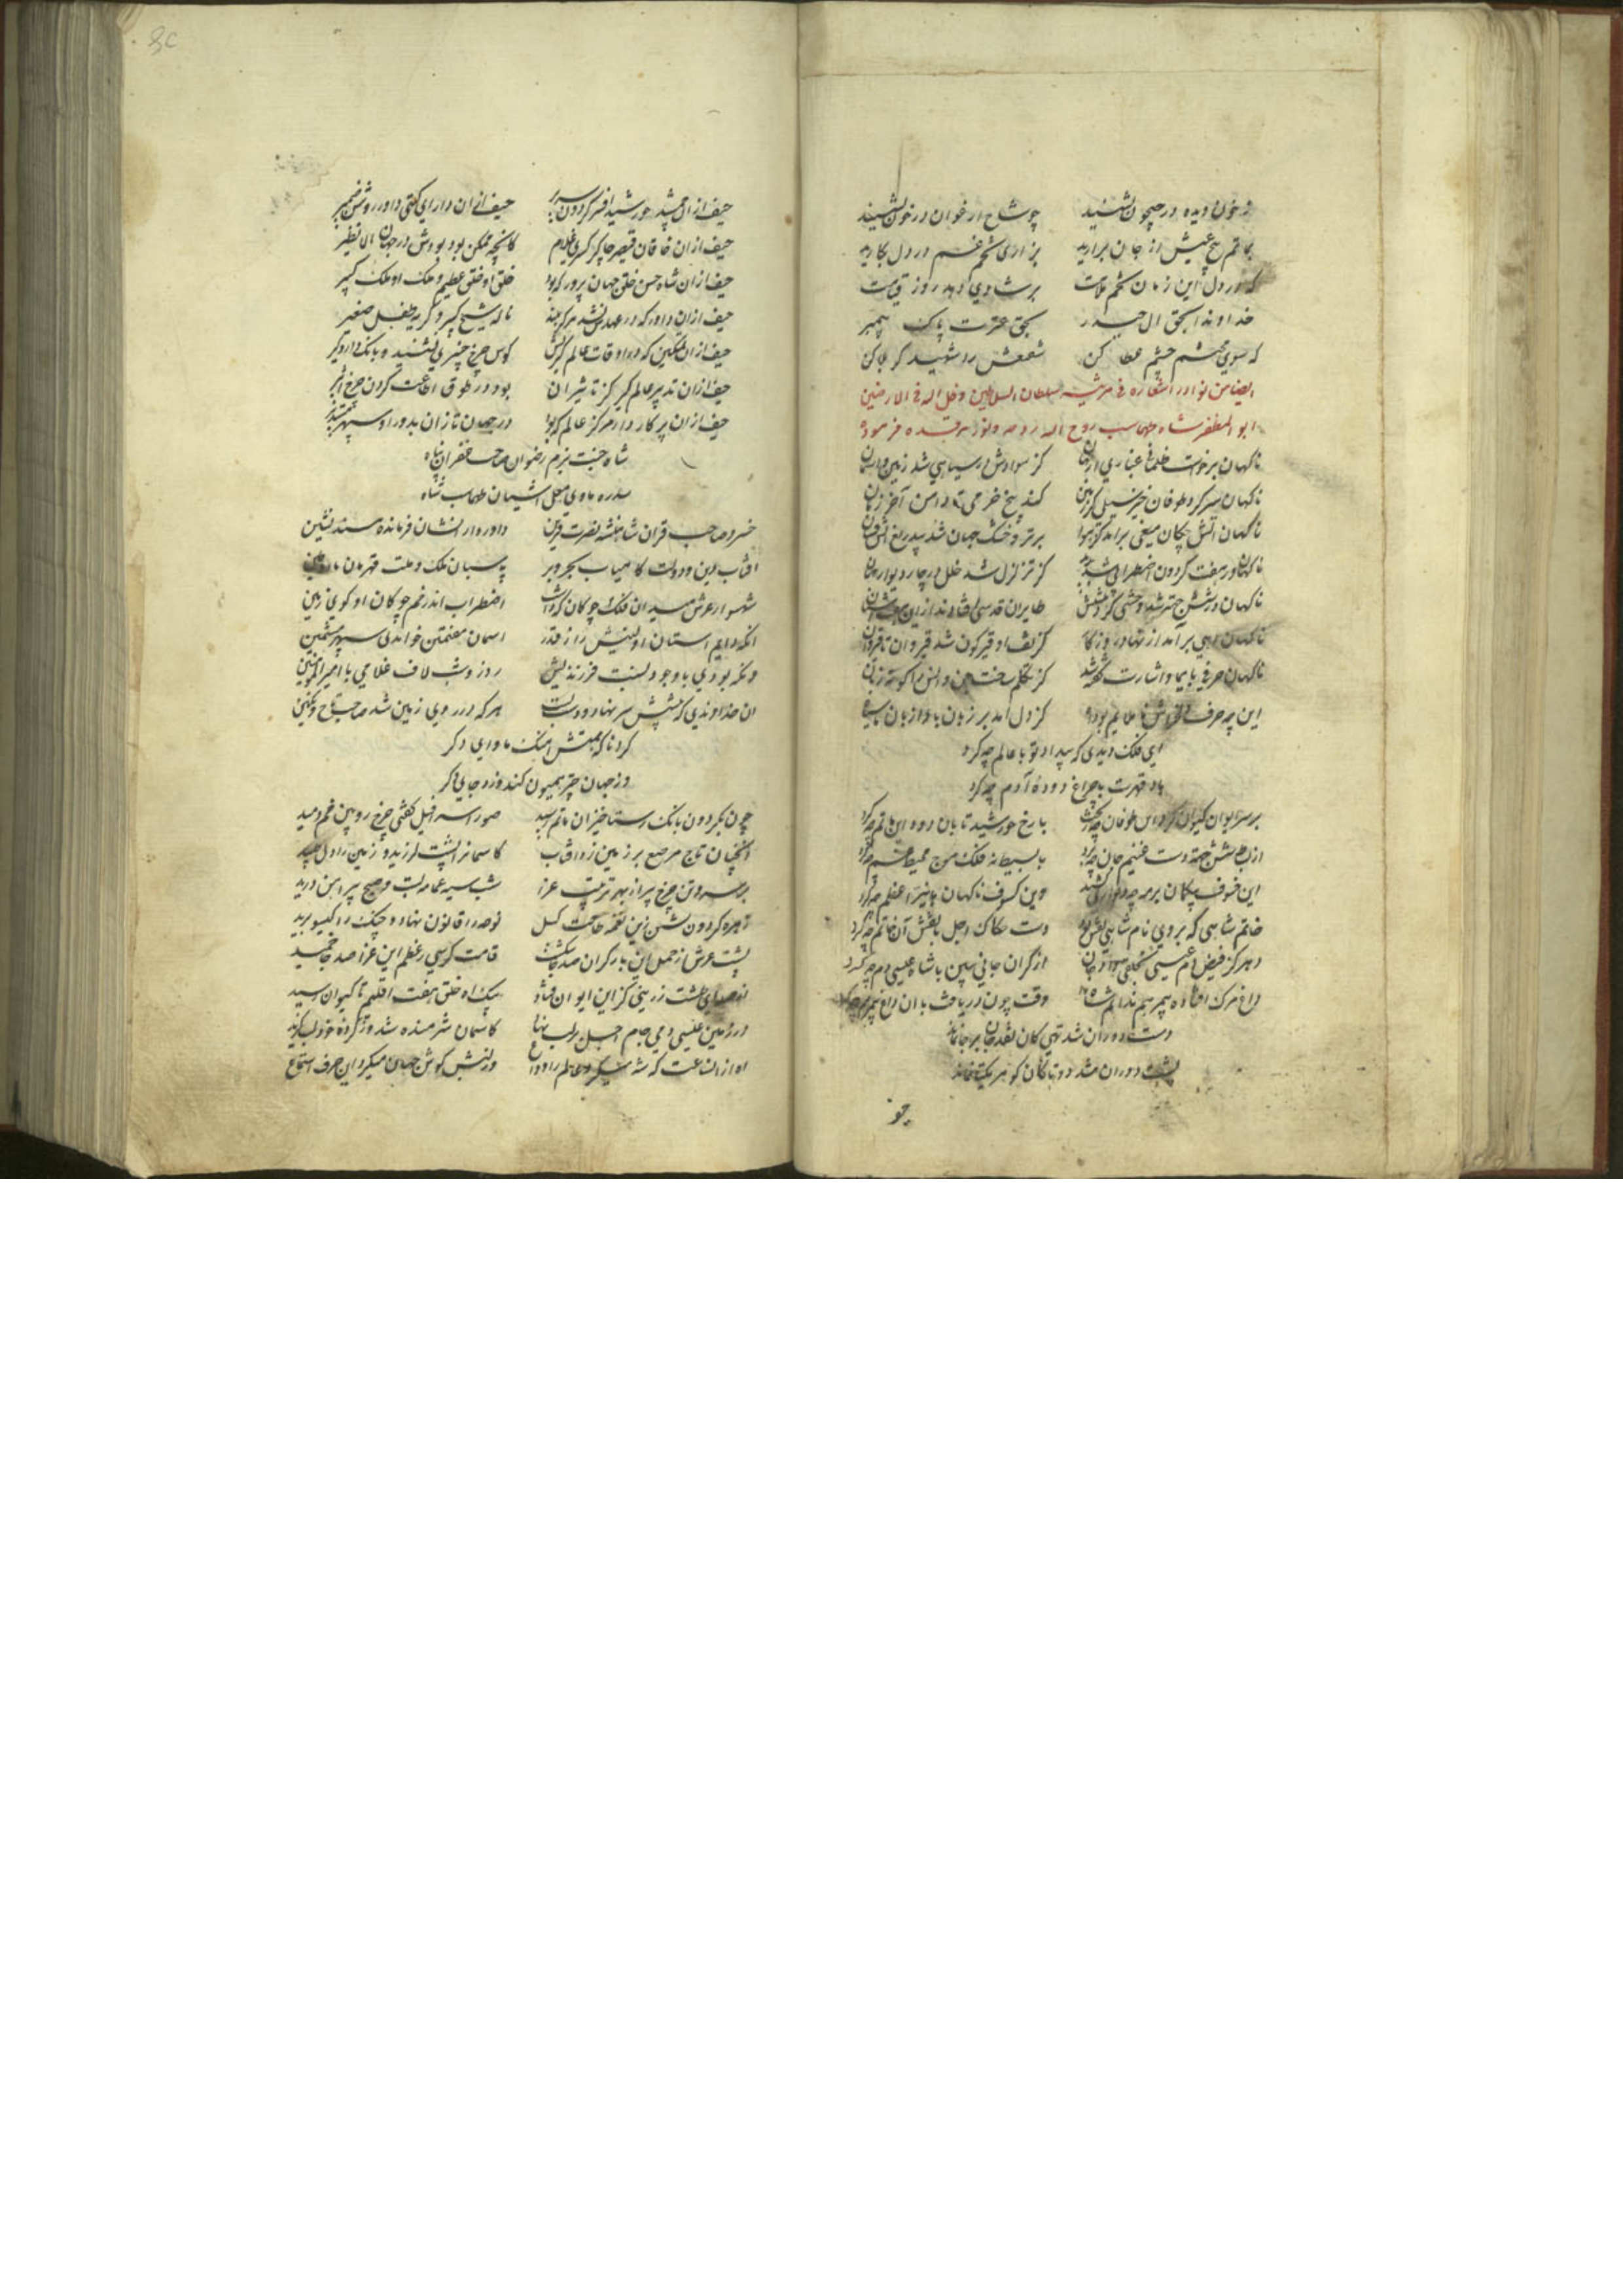 ز خون دیده در جیحون نشینید چو شاخ ارغوان در خون نشینید
بماتم بیخ عیش از جان برارید بزاری تخم غم در دل بکارید
که در دل این زمان تخم ملامت بر شادی دهد روز قیامت
خداوندا بحق ال حیدر بحق عترت پاک پیمبر
که سوی محتشم چشم عطا کن شفیعش را شهید کربلا کن
ایضا من نوادر اشعاره فی مرثیه سلطان السلاطین و ظل اله فی الارضین
ابو المظفر شاه طهماسب روح اله روحه و نور مرقده فرموده
ناکهان برخاست ظلمانی غباری از جهان کز سوادش در سیاهی شد زمین و اسمان
ناکهان سر کرد طوفان خیز سیلی کز زمین کند بیخ خرمی تا دامن آخر زمان
ناکهان اتش چکان میغی برامد کز هوا بر تر و خشک جهان شد بیدریغ اتش فشان
ناکهان در هفت کردون اضطرابی شد پدید کز تزلزل شد خلل در چار دیوار جهان
ناکهان در شش جهت شد وحشتی کز دهشتش طایران قدسی افتادند از این اشیان
ناکهان اهی برامد از نهاد روزکار کز تف او قیرکون شد قیروان تا قیروان
ناکهان حرفی بایما و اشارت گفته شد کز تکلم ساخت جن و انس را کوته زبان
این چه حرف دلخراش عالم بود کز دل امد بر زبان با و از زبان
ای فلک دیدی که بیداد تو با عالم چه کرد
باد قهرت با چراغ دودهٔ آدم چه کرد
بر سر ایوان کیوان کرد این طوفان چه ریخت با رخ خورشید تابان دود این ماتم چه کرد
از بساط شش جهت دست غنیم جان چه برد با بسیط نه فلک موج محیط غم چه کرد
این خسوف بیکمان بر مه چه دیوار کشید وین کسوف ناکهان با نیر اعظم چه کرد
خاتم شاهی که بر وی نام شاهی نقش بود دست حکاک اجل با نقش آن خاتم چه کرد
دهر کز فیض دم عیسی بخلقی داد جان از کران جانی ببین با شاه عیسی دم چه کرد
داغ مرک افتاده بیمرهم ندانم شاه را وقت چون دریافت با ان داغ بیمرهم چه کرد
دست دوران شد تهی کان نقد جان بر جا نماند
پشت دوران شد دوتا کان کوهر یکتا نماند
حیف از ان جمشید خورشید افسر کردون سریر حیف از ان دارای کیتی داور روشن ضمیر
حیف از ان خاقان قیصر چاکر کسری غلام کانچه ممکن بود بودش در جهان الا نظیر
حیف از ان شاه حسن خلق جهان پرور که بود خلق او خلق عظیم و ملک او ملک کبیر
حیف از ان داور که در عهدش نشد هرکز بلند ناله شیخ کبیر و کریهٔ طفل صغیر
حیف از ان تمکین که در اوقات عالم کیریش کوس چرخ چنبری نشنید و بانک دار و کیر
حیف از ان تدبیر عالم کیر کز تاثیر ان بود در طوق اطاعت کردن چرخ اثیر
حیف از ان پرکار دار مرکز عالم که بود در جهان تازان بدور او سپهر مستدیر
شاه جنت بزم رضوان صاحب غفران پناه
سدره ماوی معلی اشیان طهماسب شاه
خسرو صاحب قران شاهنشه نصرت قرین داور دارا نشان فرمانده مسند نشین
افتاب دین و دولت کامیاب بحر و بر پاسبان ملک و ملت قهرمان
شهسوار عرش میدان فلک چوکان که داشت اضطراب اندر خم چوکان او کوی زمین
انکه دایم استان اولینش را ز قدر اسمان هفتمین خواندی سپهر هشتمین
وانکه بودی با وجود نسبت فرزندیش روز و شب لاف غلامی با امیر المومنین
ان خداوندی که پیشش سر نهاد و دست بست هر که در روی زمین شد صاحب تاج و نکین
کرد ناکه همتش اهنک ماوای دکر
وز جهان چتر همیون کند و زد جای دکر
چون بکردون بانک رستاخیز ان ماتم رسید صور اسرافیل کفتی چرخ رویین خم دمید
انچنان تاج مرصع بر زمین زد افتاب کاسمانرا پشت لرزید و زمین را دل طپید
بر سر و تن چرخ پیر از بهر ترتیب عزا شب سیه عمامه بست و صبح پیراهن درید
زهره کردون نشین زین نغمه طاقت کسل نوحه را قانون نهاد و چنک را کیسو برید
پشت عرش از حمل این بار کران صد جا شکست قامت کرسی ز عظم این عزا صد جا خمید
از صدای طشت زرینی کز این ایوان فتاد بیک اه خلق هفت اقلیم تا کیوان رسید
در زمین عیسی دمی جام اجل بر لب نهاد کاسمان شرمنده شد وز کردهٔ خود لب کزید
اه از ان ساعت که شه میکرد عالم را وداع ورنش کوش جهان میکرد این حرف استماع
چو